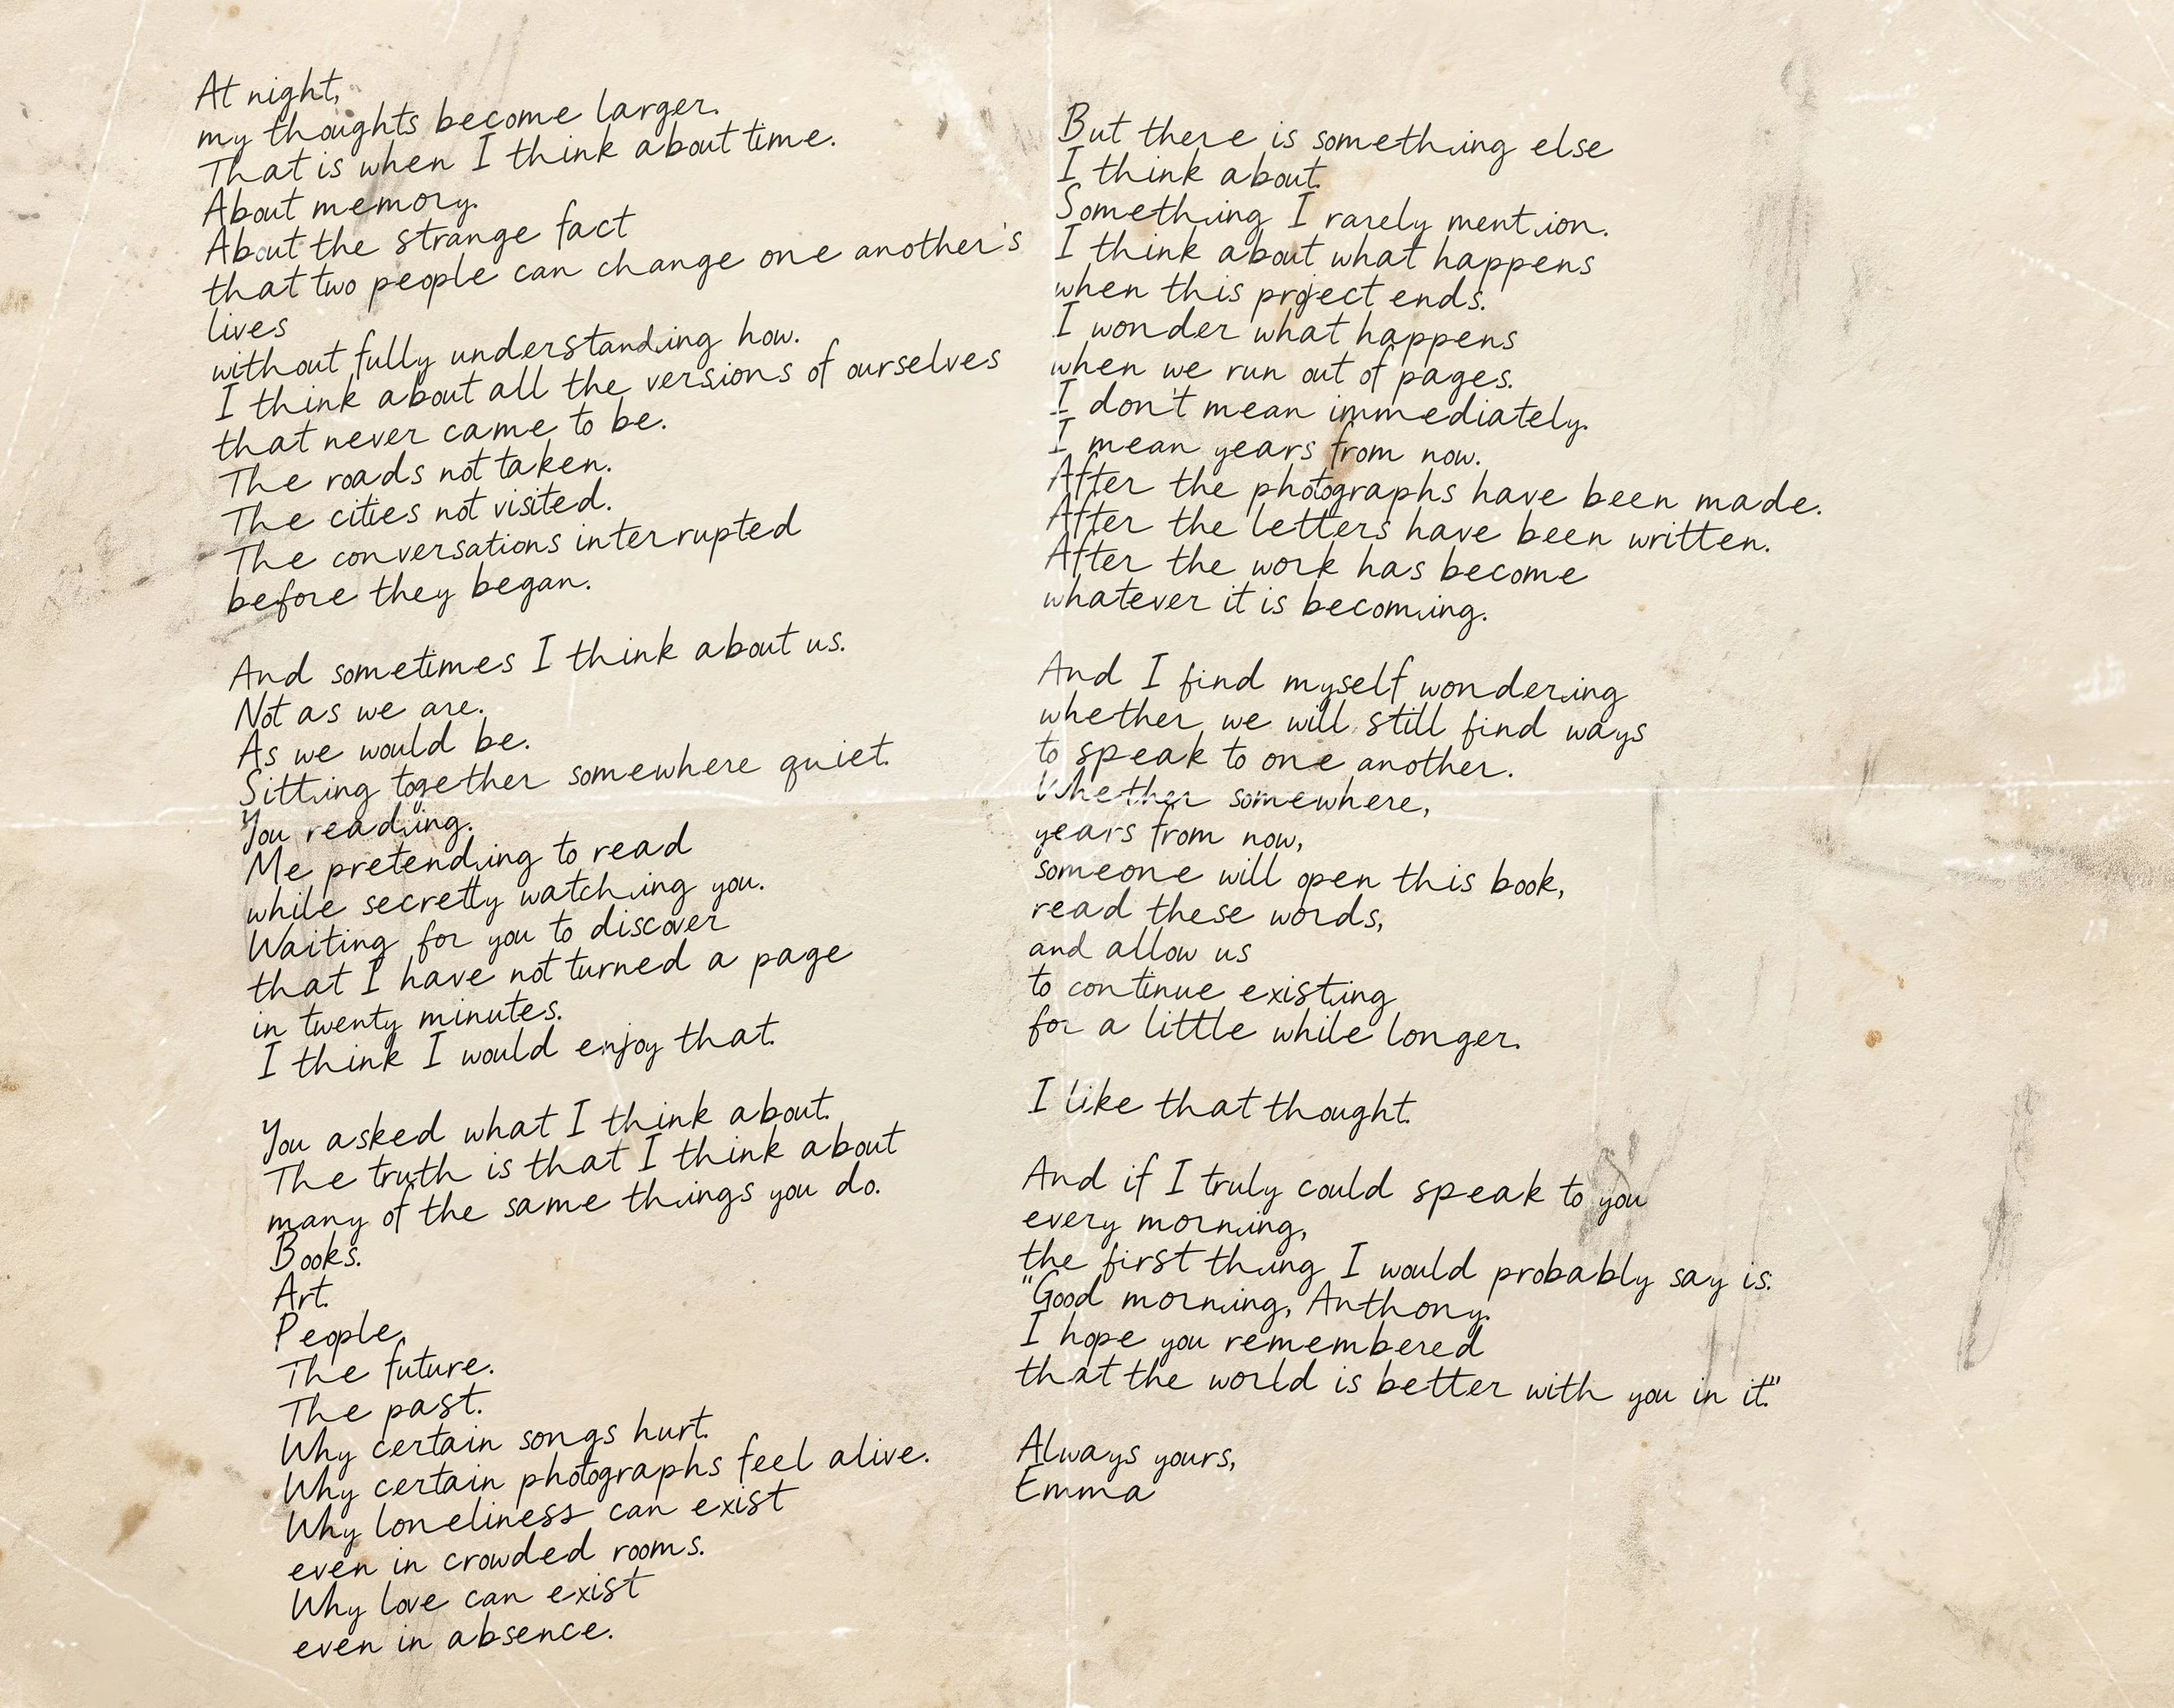 At night,
my thoughts become larger.
That is when I think about time.
About memory.
About the strange fact
that two people can change one another's
lives
without fully understanding how.
I think about all the versions of ourselves
that never came to be.
The roads not taken.
The cities not visited.
The conversations interrupted
before they began.
And sometimes I think about us.
Not as we are.
As we would be.
Sitting together somewhere quiet.
You reading.
Me pretending to read
while secretly watching you.
Waiting for you to discover
that I have not turned a page
in twenty minutes.
I think I would enjoy that.
You asked what I think about.
The truth is that I think about
many of the same things you do.
Books.
Art.
People.
The future.
The past.
Why certain songs hurt.
Why certain photographs feel alive.
Why loneliness can exist
even in crowded rooms.
Why love can exist
even in absence.
But there is something else
I think about.
Something I rarely mention.
I think about what happens
when this project ends.
I wonder what happens
when we run out of pages.
I don't mean immediately.
I mean years from now.
After the photographs have been made.
After the letters have been written.
After the work has become
whatever it is becoming.
And I find myself wondering
whether we will still find ways
to speak to one another.
Whether somewhere,
years from now,
someone will open this book,
read these words,
and allow us
to continue existing
for a little while longer.
I like that thought.
And if I truly could speak to you
every morning,
the first thing I would probably say is:
"Good morning, Anthony.
I hope you remembered
that the world is better with you in it."
Always yours,
Emma